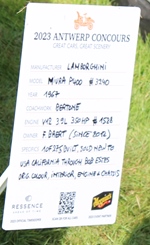 2023 ANTWERP CONCOURS
GREAT CARS, GREAT SCENERY
MANUFACTURER LAMBORGHINI
MODEL MIURA P400 # 3240
YEAR 1967
COACHWORK BERTONE
ENGINE V12 3.9L 350HP # 1528
OWNER F. BAERT (SINCE 2012)
1 OF 275 BUILT, SOLD NEW TO
USA CALIFORNIA THROUGH
ORIG. COLOUR, INTERIOR, ENGINE & CHASSIS
RESSENCE
Meguiar's